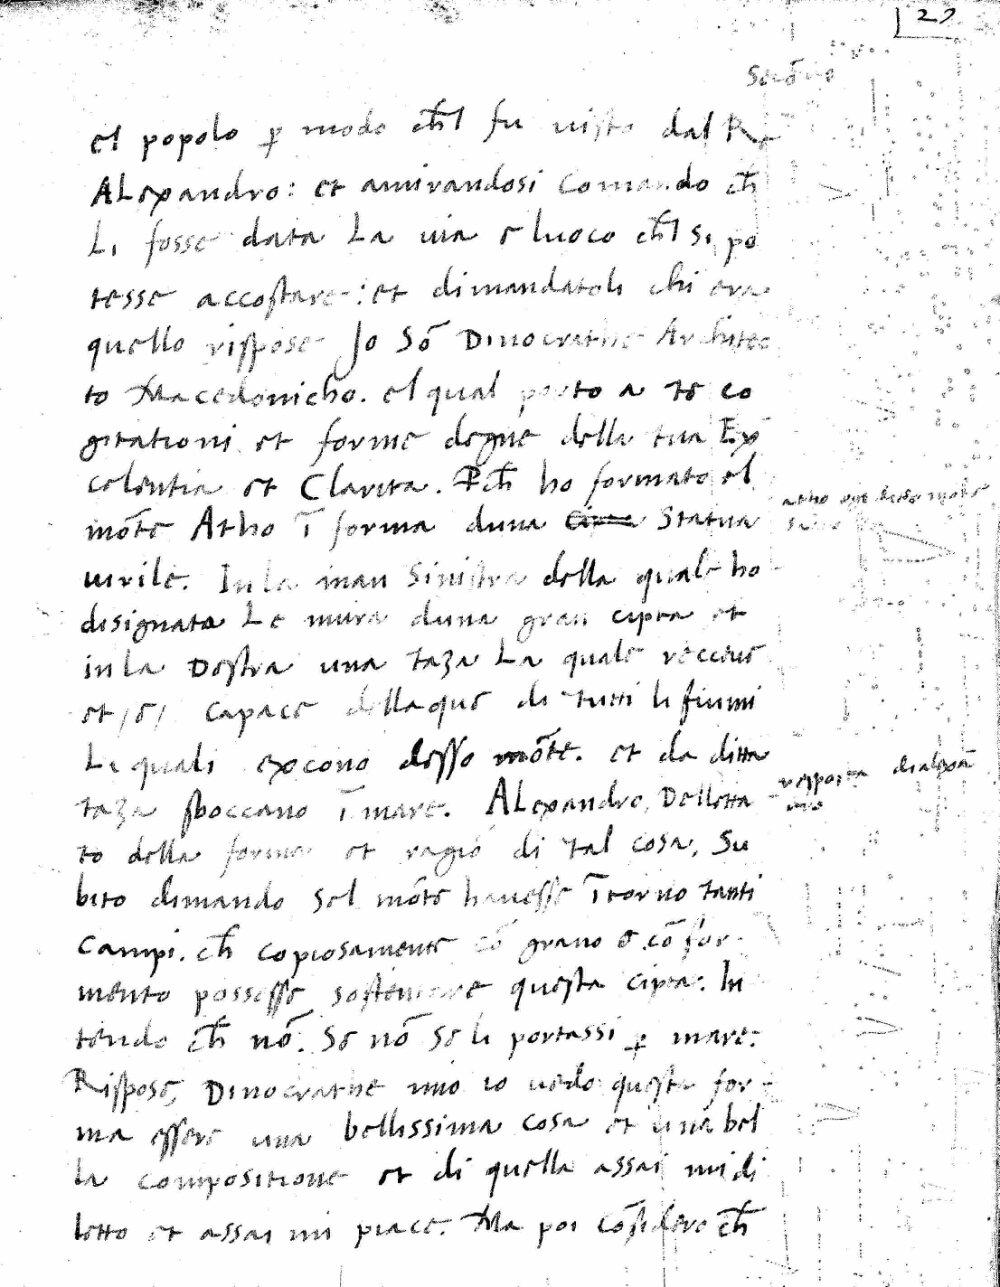 29
Secōdo
el popolo p modo ch̄l fu uisto dal Re
ALexandro: et amirandosi Comando ch̄
Li fosse data La uia e luoco ch̄l si po
tesse accostare: et dimandatoli chi era
quello rispose Jo Sō Dinocrathe Architec
to Macedonicho. el qual porto a te co
gitationi et forme degne della tua Ex
celentia et Clarita. Pch̄ ho formato el
mōte Atho ī forma duna Statua
uirile. In la man Sinistra della quale ho
disignato Le mura duna gran cipta et
in la Destra una taza La quale receue
et /e/ capace dellaque di tutti li fiumi
Li quali excono desso mōte. et da ditta
taza sboccano ī mare. ALexandro, Deletta
to della forma et ragiō di tal cosa, Su
bito dimando sel mōte hauesse ītorno tanti
Campi. ch̄ copiosamente cō grano e cō for-
mento possesse sostentare questa cipta. In
tendo ch̄ nō. Se nō Se li portassi p mare.
Rispose, Dinocrathe mio io uedo questa for-
ma essere una bellissima cosa et una bel
la compositione et di quella assai mi di
letto et assai mi piace. Ma poi Cōsidero ch̄
mōte
resposta di alexā
dro